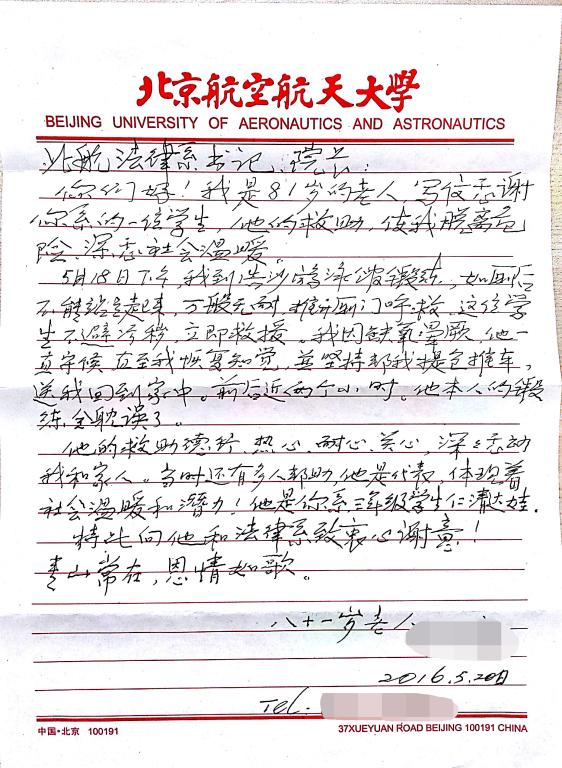 北京航空航天大學
BEIJING UNIVERSITY OF AERONAUTICS AND ASTRONAUTICS
北航法律系书记、院长:
你们好!我是81岁的老人,写信感谢
你系的一位学生,他的救助,使我脱离危
险、深感社会温暖。
5月18日下午,我到游泳馆锻炼,如厕后
不能站立起来,万般无耐,推开厕门呼救,这位学
生不避污秽,立即救援。我因缺氧晕厥,他一
直守候,直至我恢复知觉,并坚持帮我提包推车,
送我回到家中。前后近两个小时。他本人的锻
炼全耽误了。
他的救助德行、热心、耐心、关心,深深感动
我和家人。当时还有多人帮助,他是代表,体现着
社会温暖和潜力!他是你系三年级学生仁清达娃.
特此向他和法律系致衷心谢意!
青山常在,恩情如歌。
八十一岁老人
2016.5.20日
Tel.
中国·北京 100191
37XUEYUAN ROAD BEIJING 100191 CHINA